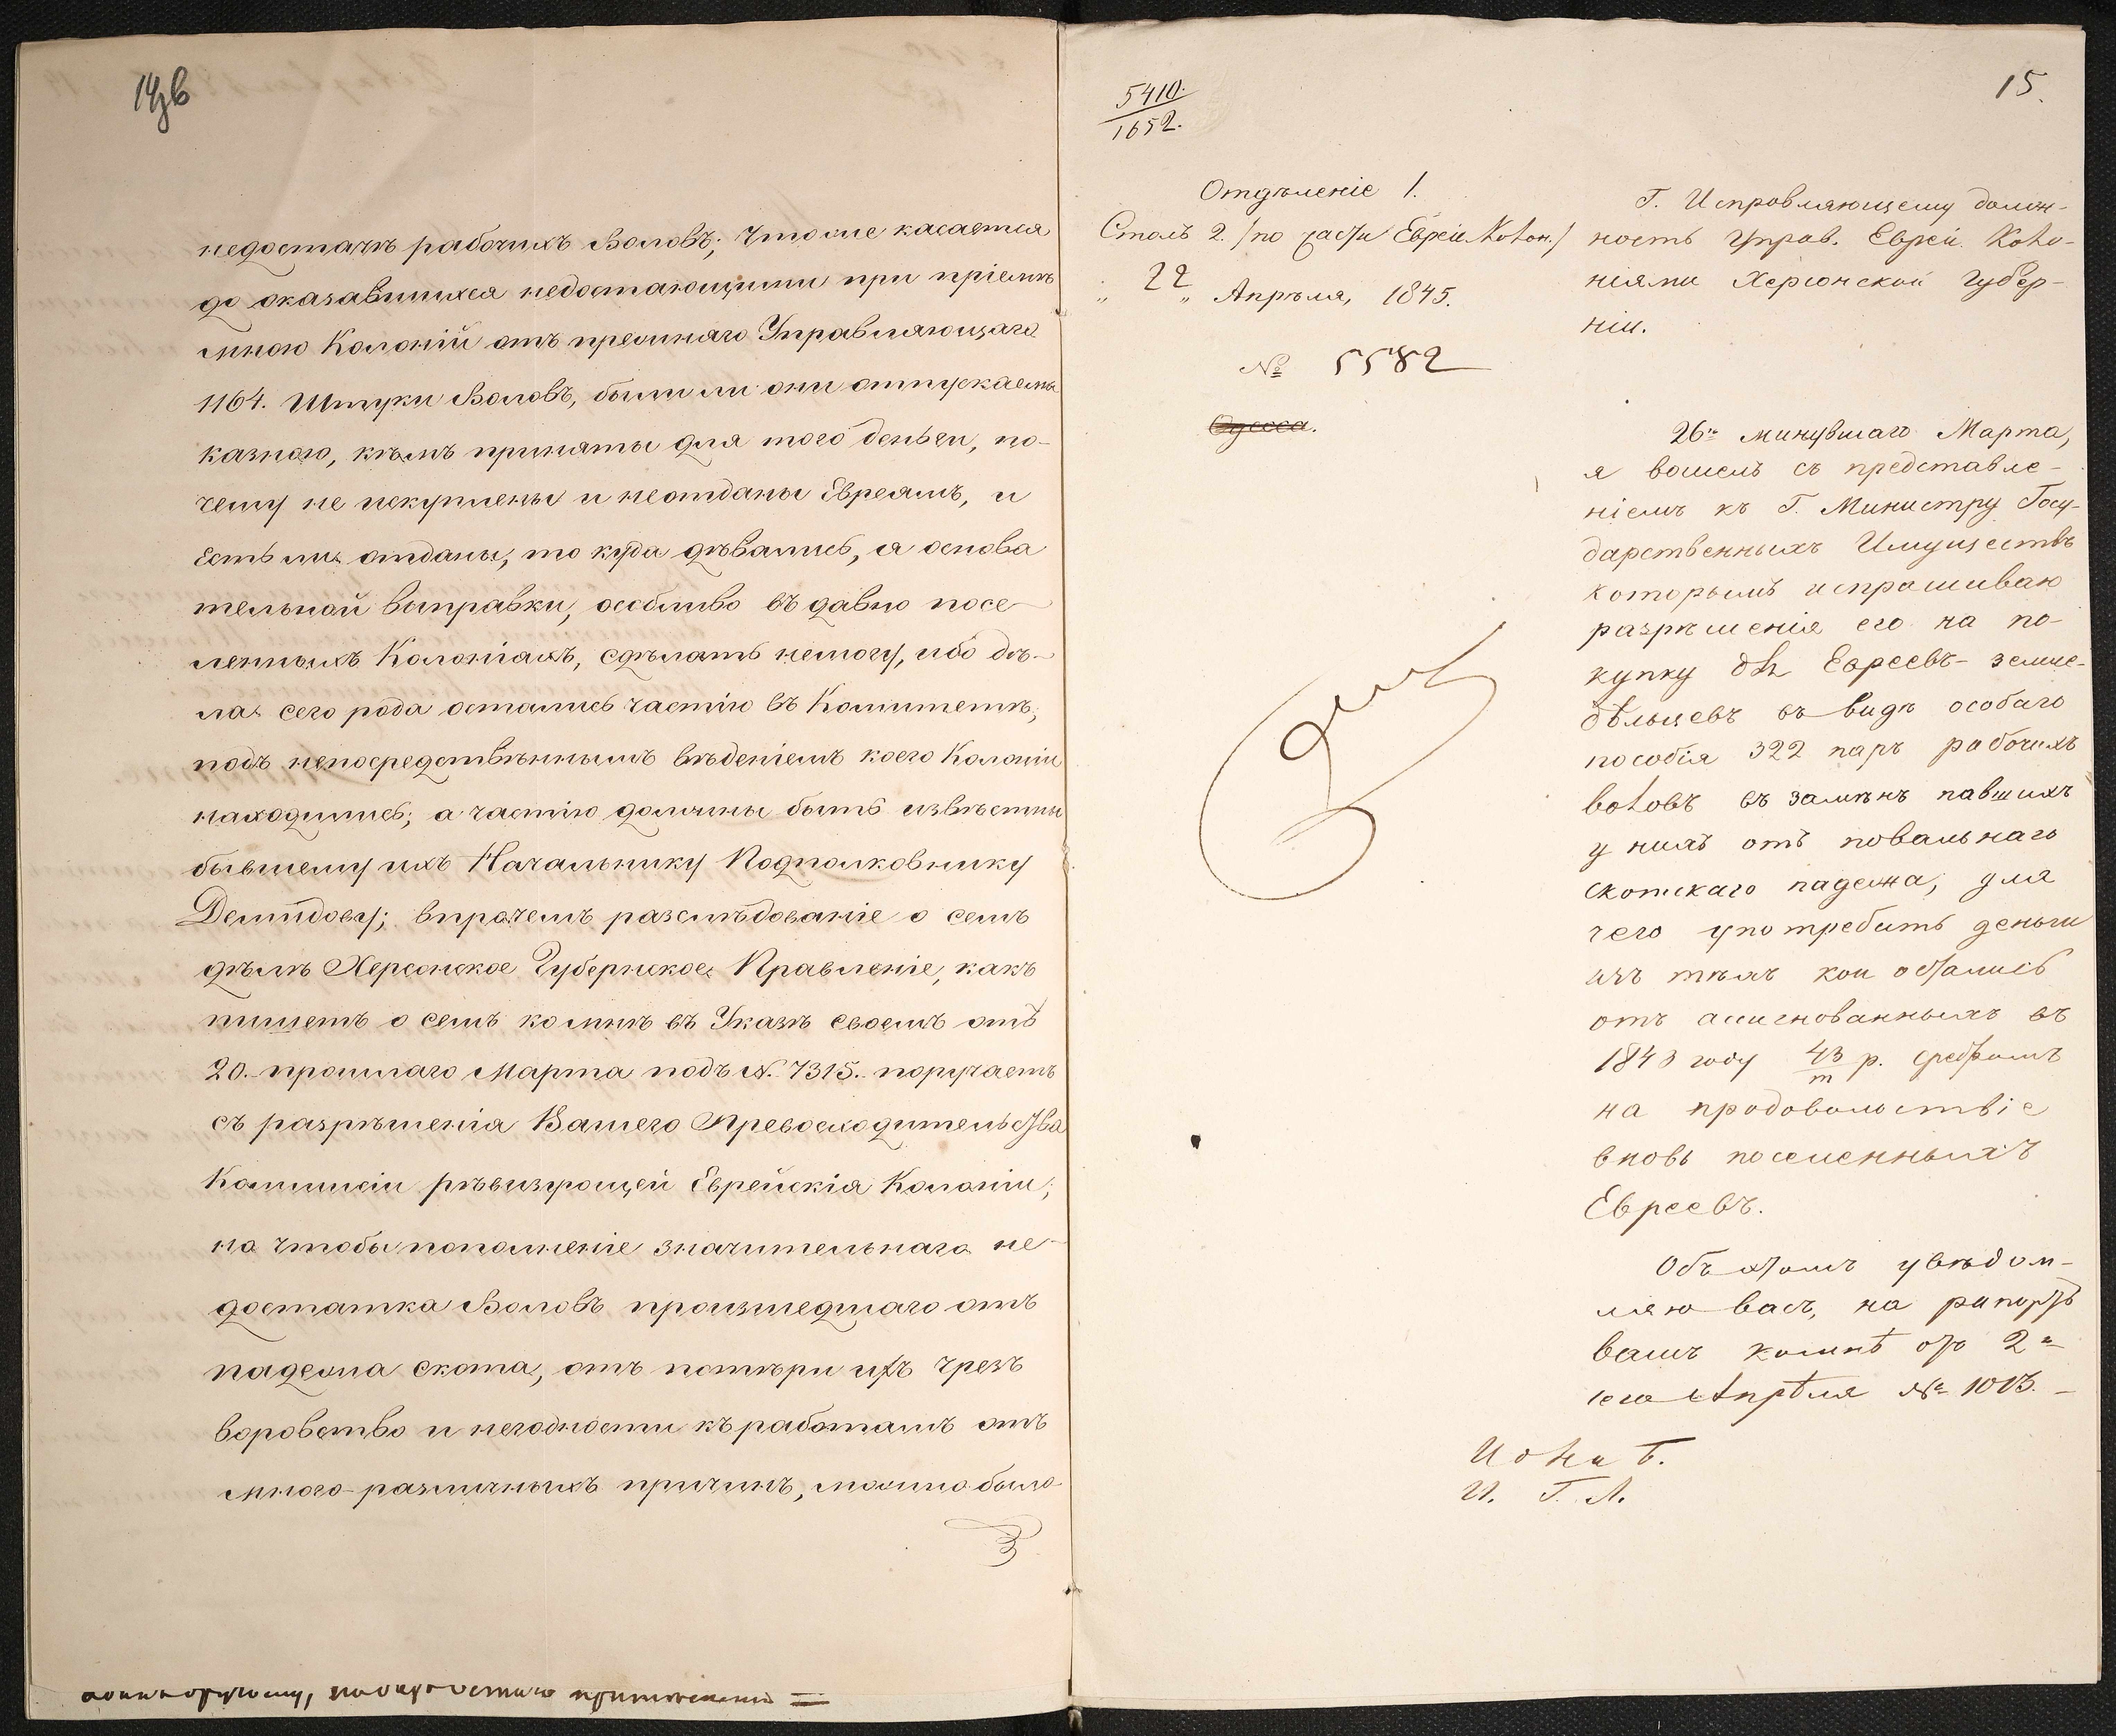 14об
недостачѣ рабочихъ Воловъ; Чтоже касается
до оказавшихся недостающими при пріемѣ
мною Колоній отъ прежняго Управляющаго
1164. Штуки Воловъ, были ли они отпускаемы
казною, кѣмъ приняты для того деньги, по-
чему не искуплены и неотданы Евреямъ, и
Естьли отданы, то куда дѣвались, я основа
тельной выправки, особливо въ давно посе-
ленныхъ Колоніахъ, сдѣлать немогу, ибо дѣ-
ла сего рода остались частію въ Комитетѣ,
подъ непосредствѣннымъ вѣденіемъ коего Колоніи
находились; а частію должны быть извѣстны
бывшему ихъ Начальнику Подполковнику
Демидову; впрочемъ разслѣдованіе о семъ
дѣлѣ Херсонское Губернское Правленіе, какъ
пишетъ о семъ ко мнѣ въ Указѣ своемъ отъ
20. прошлаго Марта подъ №. 7315. поручаетъ
съ разрѣшенія Вашего Превосходительства
Коммисіи рѣвизующей Еврейскія Колоніи;
но чтобы пополненіе значительнаго не-
достатка Воловъ происшедшаго отъ
падежа скота, отъ потѣри ихъ чрезъ
воровство и негодности къ работамъ отъ
много-различныхъ причинъ, можно было
5410.
1652.
15.
Отдѣленіе 1.
Столъ 2. /по части Еврей. Колон./
" 22 " Апрѣля, 1845.
№ 5582
Одесса.
Г. Исправляющему долж-
ность Управ. Еврей. Коло-
ніями Херсонской Губер-
ніи.
26го минувшаго Марта,
я вошелъ съ представле-
ніемъ къ Г. Министру Госу-
дарственныхъ Имуществъ
которымъ испрашиваю
разрѣшенія его на по-
купку для Евреевъ-земле-
дѣльцевъ въ видѣ особаго
пособія 322 паръ рабочихъ
воловъ въ замѣнъ павшихъ
у нихъ отъ повальнаго
скотскаго падежа, для
чего употребить деньги
изъ тѣхъ кои остались
отъ ассигнованныхъ въ
1843 году 43/m р. сребромъ
на продовольствіе
вновь поселенныхъ
Евреевъ.
Объ этомъ увѣдом-
ляю васъ, на рапортъ
вашъ комнѣ отъ 2го
сего Апрѣля № 1013.